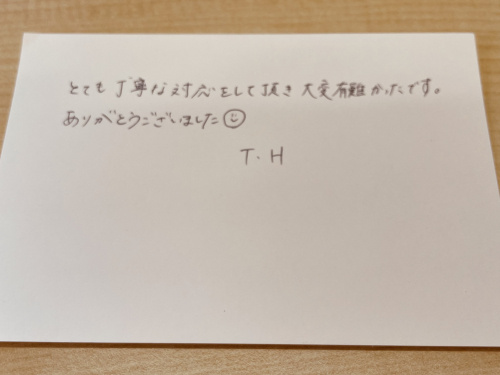 とても丁寧な対応をして頂き大変有難かったです。
ありがとうございました☺
T.H